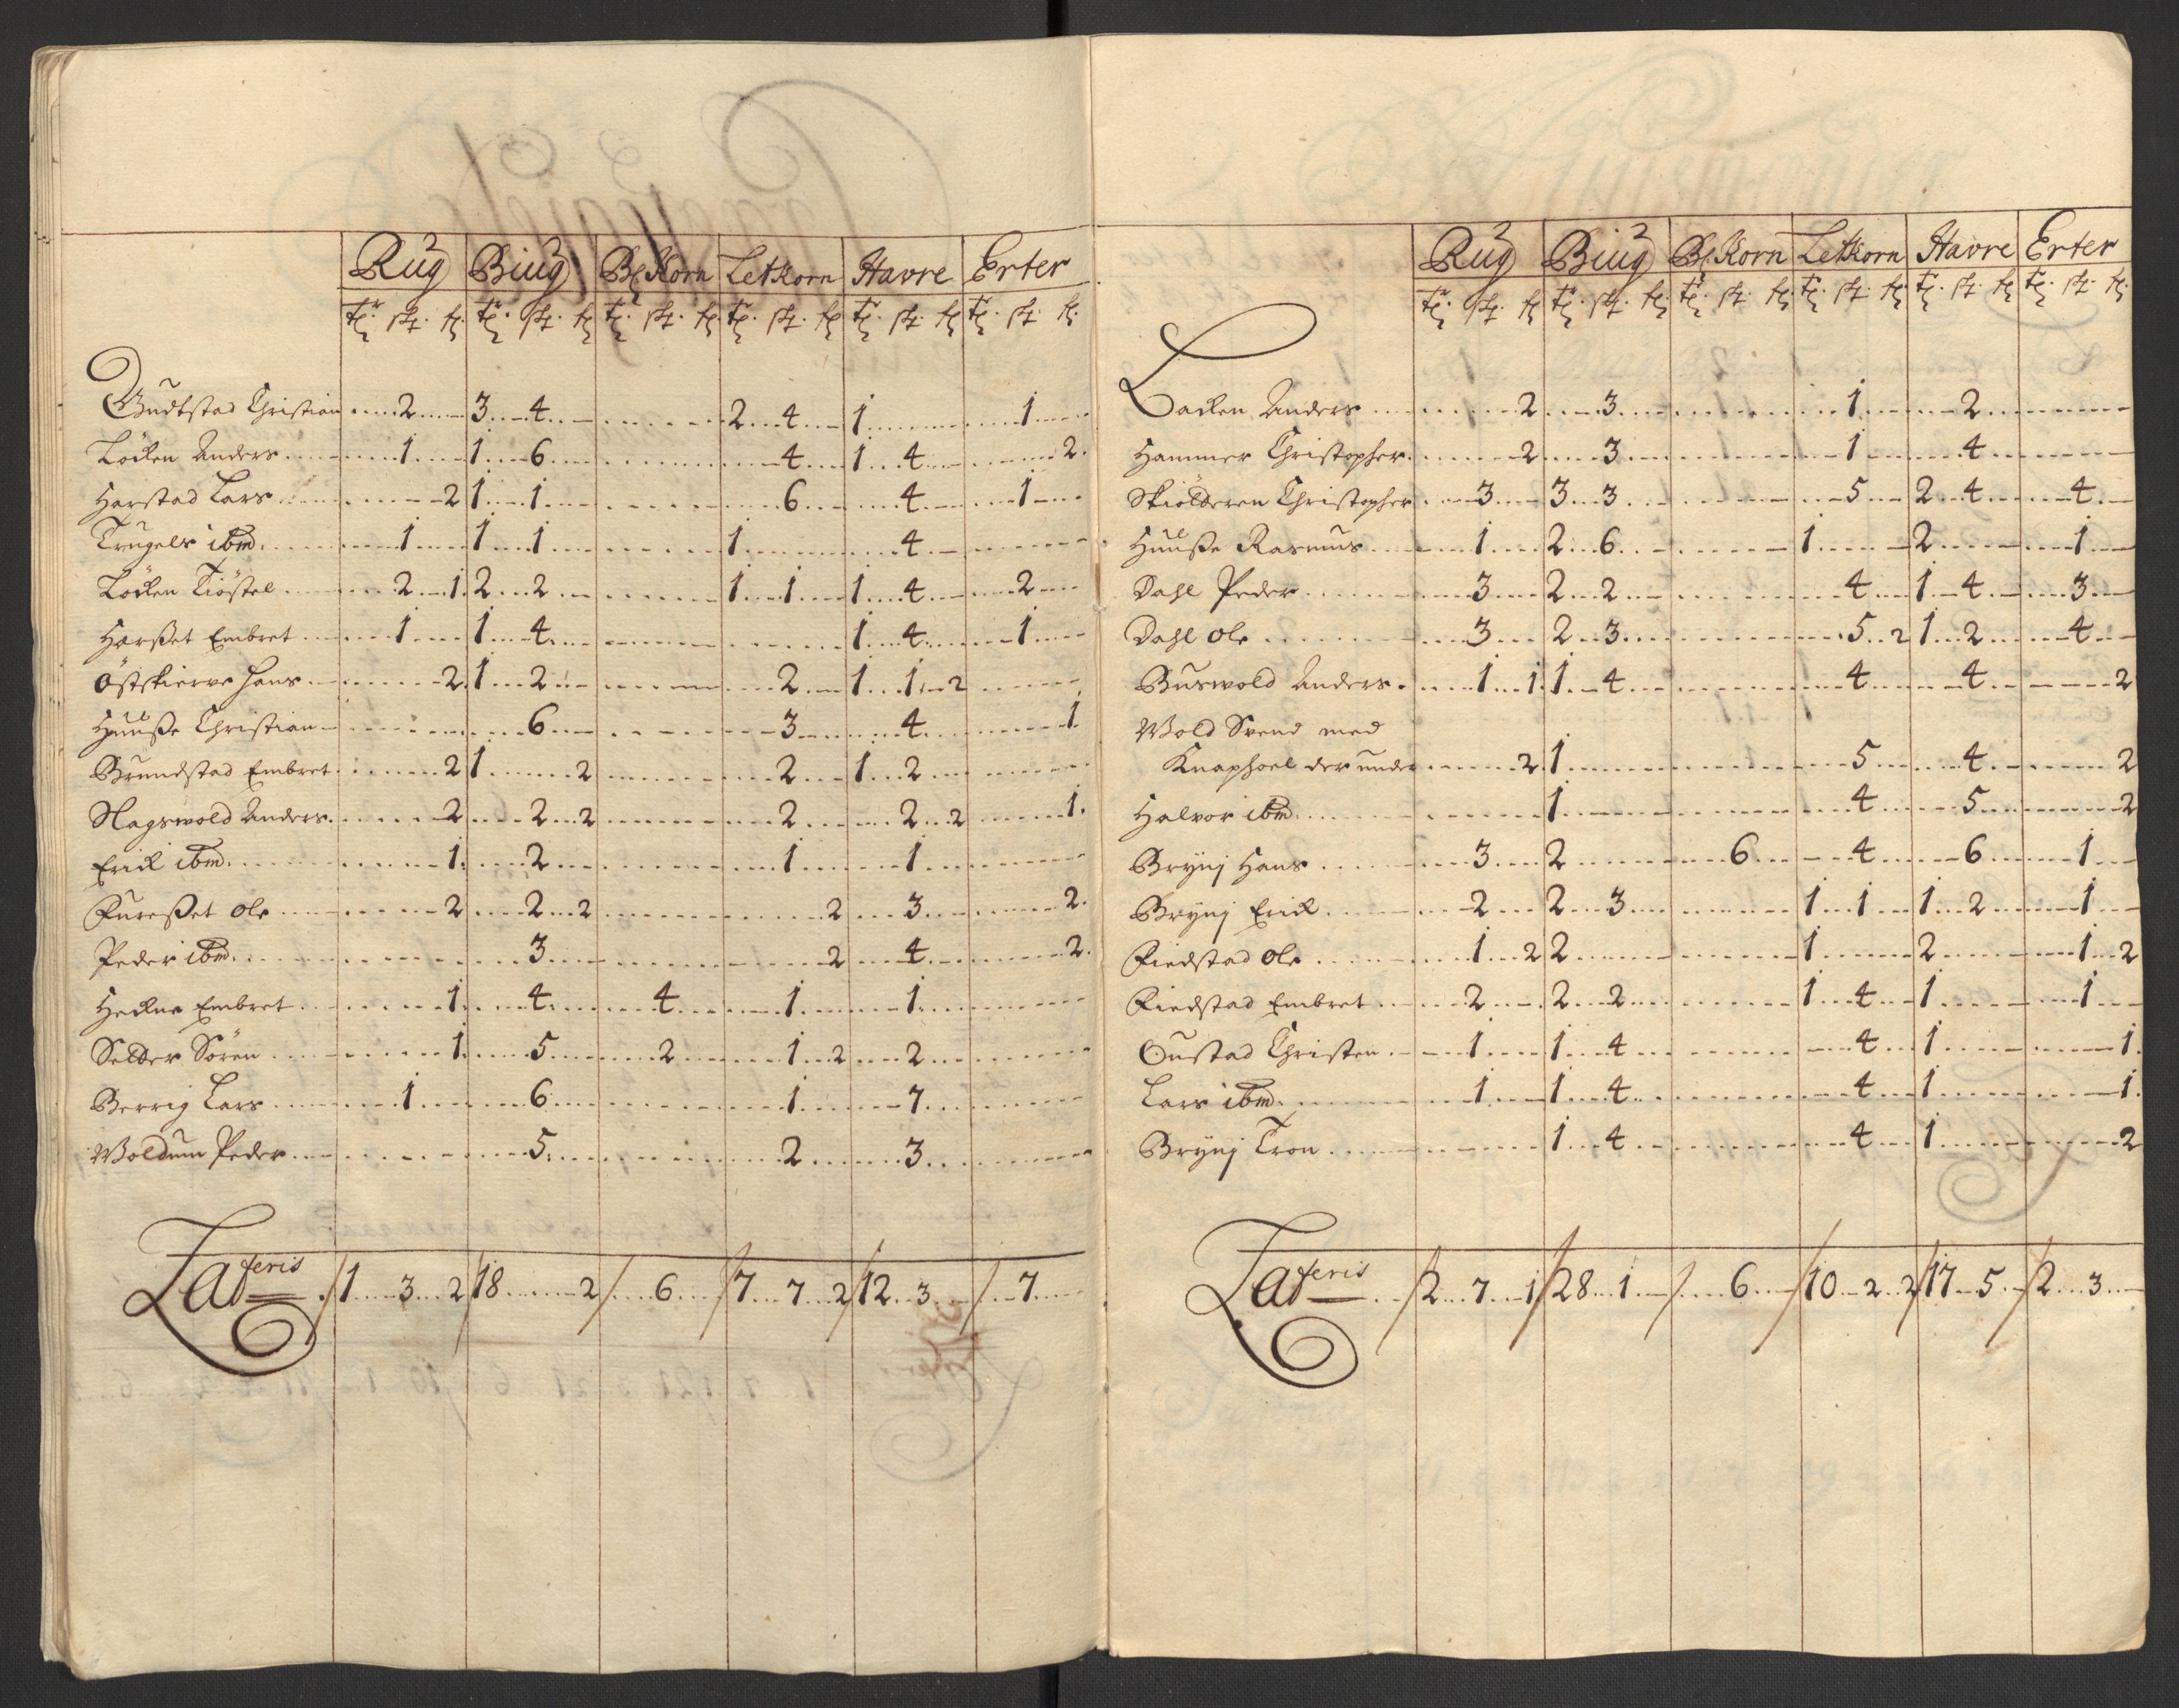 Rug Biug Bl Korn Letkorn Havre Erter
tr. sk. fr. tr. sk. fr. tr. sk. fr. tr. sk. fr. tr. sk. fr. tr. sk. fr.
Christian 2 3 4 2 4 1 1
Löcken Anders 1 1 6 4 1 4 2
Harstad Lars 2 1 1 6 4 1
Trugels ibm 1 1 1 1 4
Löcken Tiöstel 2 1 2 2 1 1 1 4 2
Harßet Embret 1 1 4 1 4 1
Östskierve Hans 2 1 2 2 1 1 2
Huuße Christian 6 3 4 1
Brundstad Embret 2 1 2 2 1 2
Nagswold Anders 2 2 2 2 2 2 1
Erick ibm 1 2 1 1
Fureßet Ole 2 2 2 2 3 2
Peder ibm 3 2 4 2
Heckne Embret 1 4 4 1 1
Selder Sören 1 5 2 1 2 2
Berrig Lars 1 6 1 7
Woldum Peder 5 2 3
Lateris 1 3 2 18 2 6 7 7 2 12 3 7
Rug Biug Bl Korn Letkorn Havre Erter
tr. sk. fr. tr. sk. fr. tr. sk. fr. tr. sk. fr. tr. sk. fr. tr. sk. fr.
Lacken Anders 2 3 1 2
Hammer Christopher 2 3 1 4
Skiolderen Christopher 3 3 3 5 2 4 4
Huuße Rasmus 1 2 6 1 2 1
Dahl Peder 3 2 2 4 1 4 3
Dahl Ole 3 2 3 5 2 1 2 4
Buswold Anders 1 1 1 4 4 4 2
Wold Svend med
Knaphoel der under 2 1 5 4 2
Halvor ibm 1 4 5 2
Brynj Hans 3 2 6 4 6 1
Brynj Erick 2 2 3 1 1 1 2 1
Fiedstad Ole 1 2 2 1 2 1 2
Fiedstad Embret 2 2 2 1 4 1 1
Oustad Christen 1 1 4 4 1 1
Lars ibm 1 1 4 4 1 1
Brynj Tron 1 4 4 1 2
Lateris 2 7 1 28 1 6 10 2 2 17 5 2 3